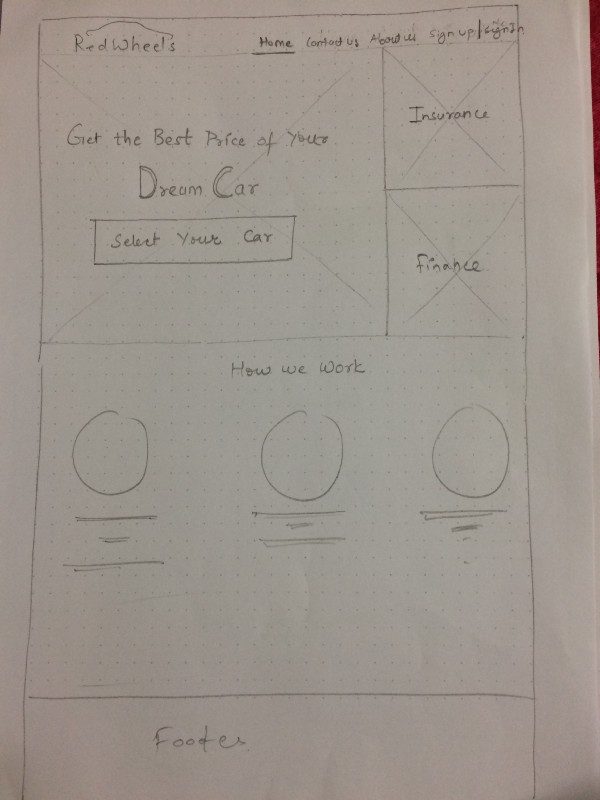 RedWheels
Home Contact us About us Sign up/signIn
Get the Best Price of Your
Dream Car
Select Your Car
Insurance
Finance
How we Work
Footer